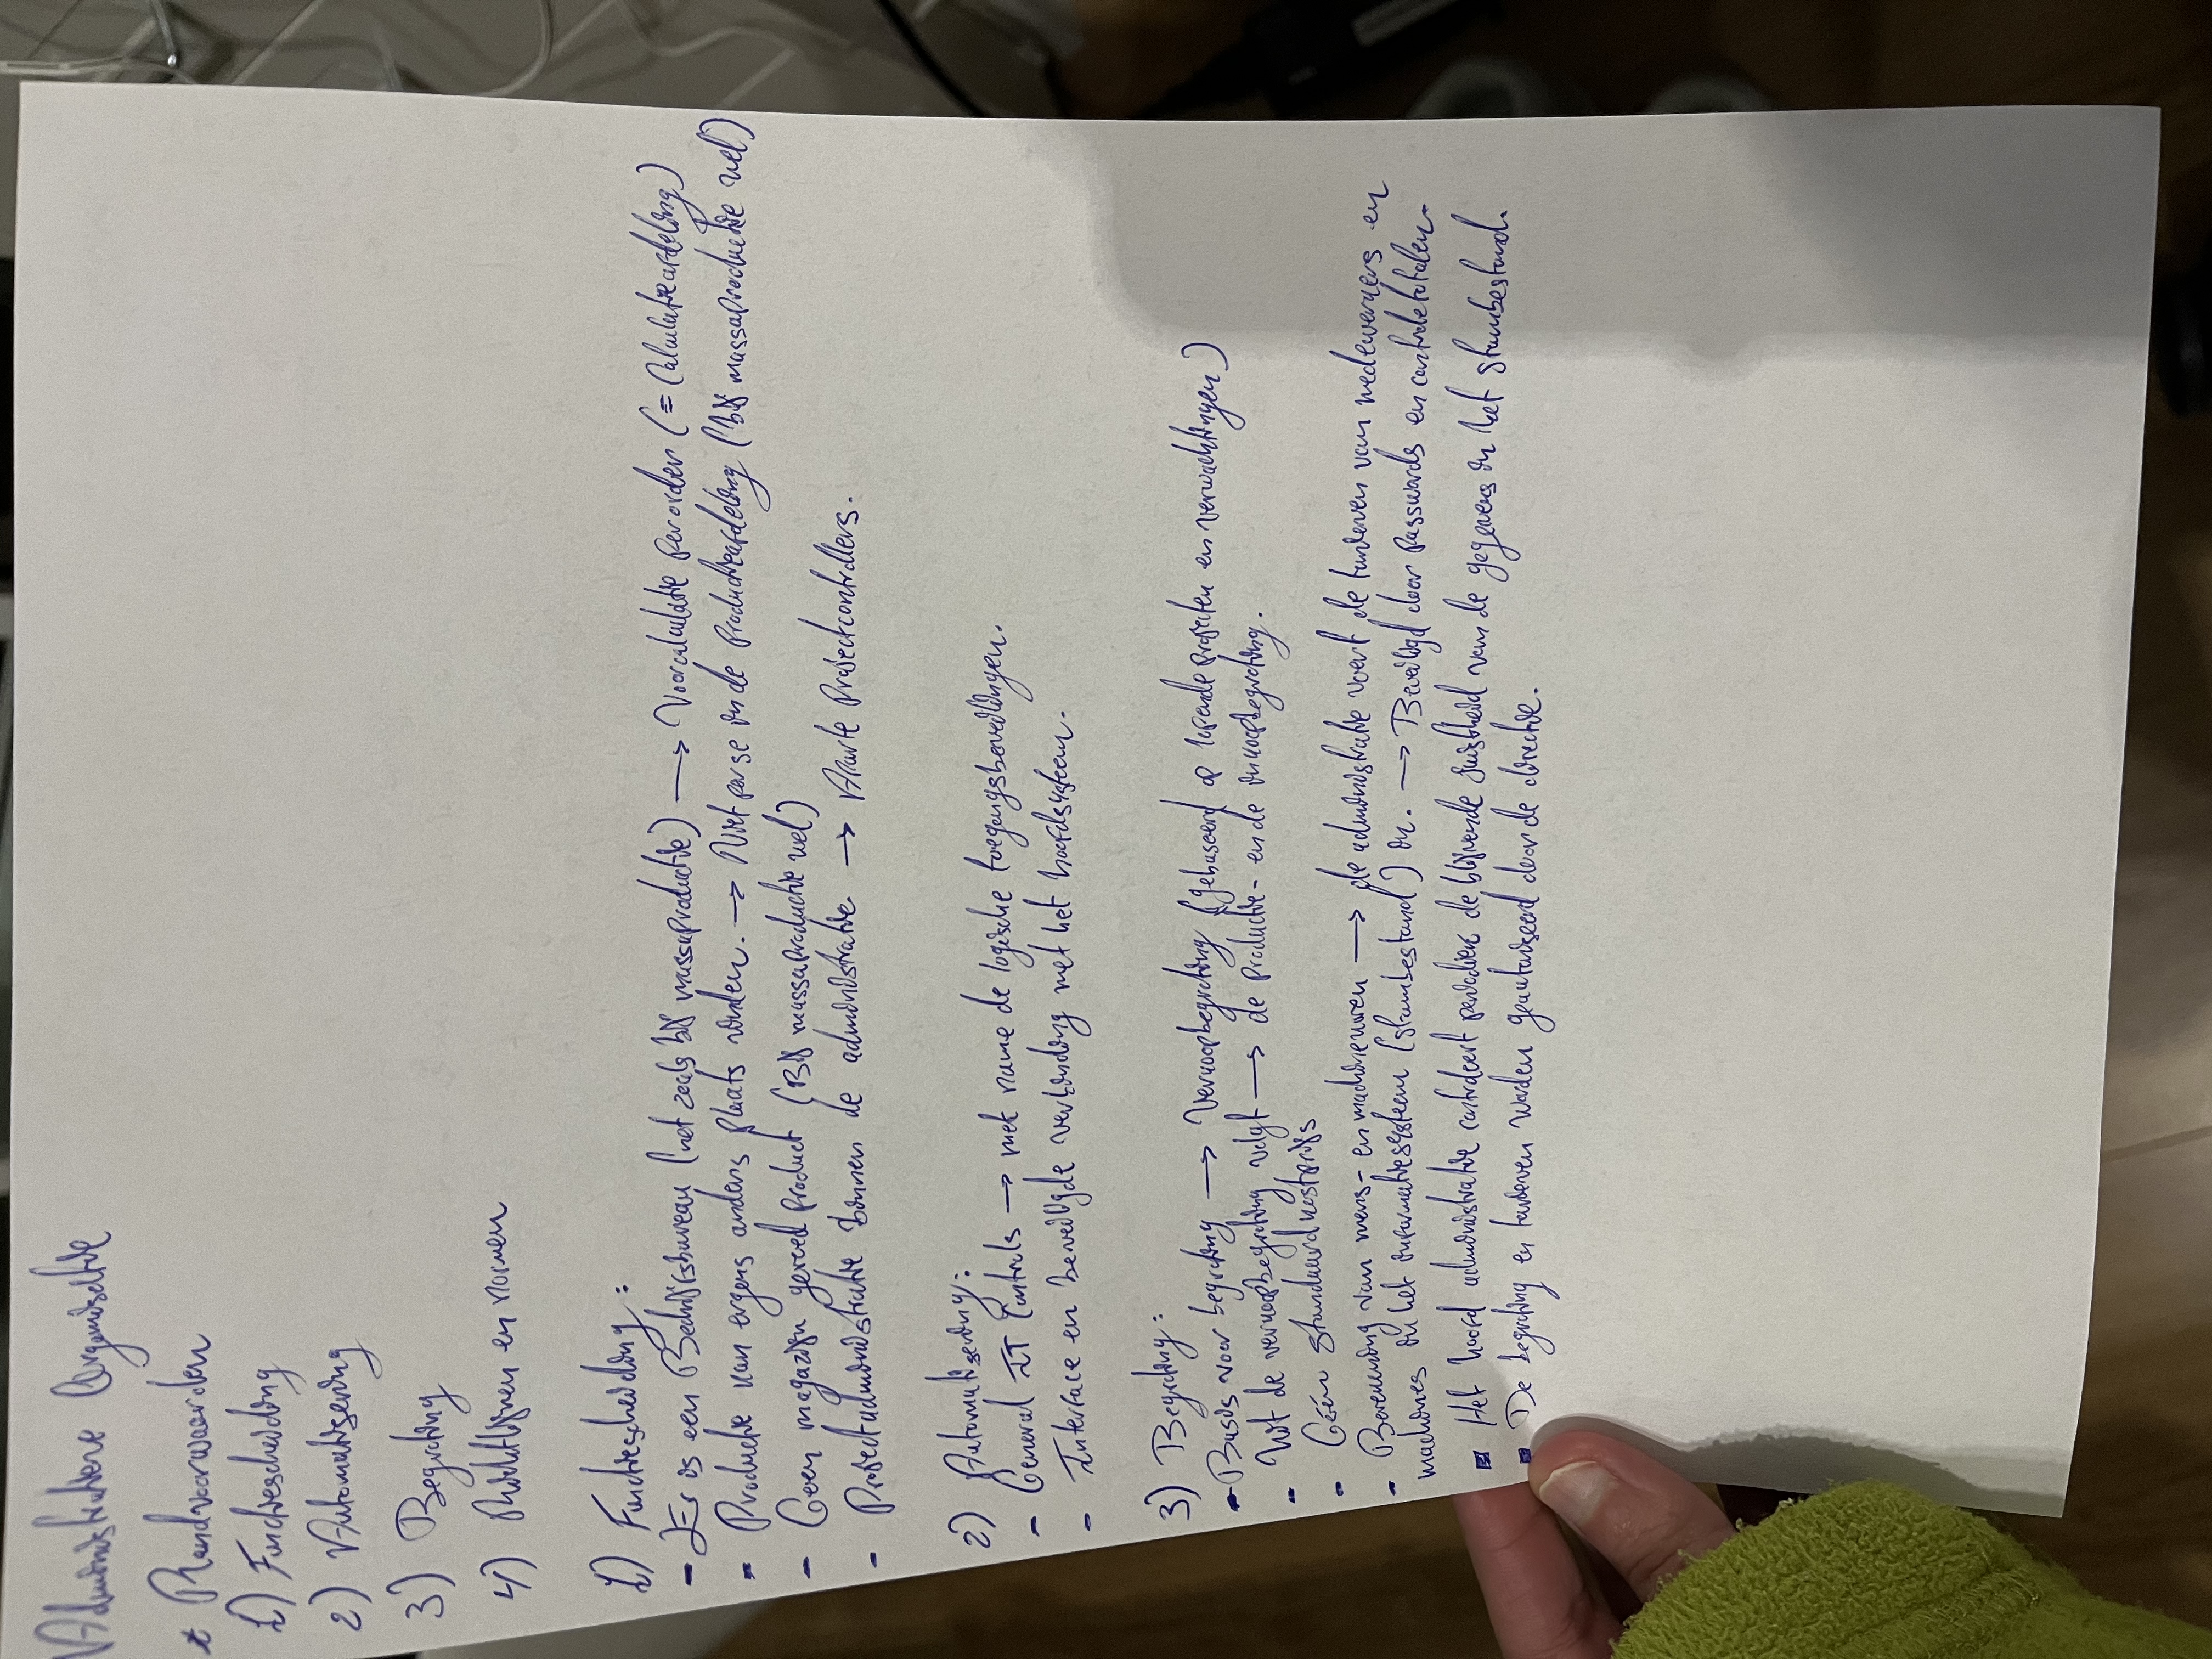 Administratieve Organisatie
* Randvoorwaarden
1) Functiescheiding
2) Automatisering
3) Begroting
4) Richtlijnen en normen
1) Functiescheiding:
- Er is een Bedrijfsbureau (net zoals bij massaproductie) → Voorcalculatie per order (= Calculatieafdeling)
- Productie kan ergens anders plaats vinden. → Niet per se in de productieafdeling (bij massaproductie wel)
- Geen magazijn gereed product (Bij massaproductie wel)
- Projectadministratie binnen de administratie → Aparte Projectcontrollers.
2) Automatisering:
- General IT Controls → met name de logische toegangsbeveiligingen.
- Interface en beveiligde verbinding met het hoofdsysteem.
3) Begroting:
- Basis voor begroting → Verkoopbegroting (gebaseerd op lopende projecten en verwachtingen)
- Uit de verkoopbegroting volgt → de productie- en de inkoopbegroting.
- Géén standaardkostprijs
- Berekening van mens- en machineuren → de administratie voert de tarieven van medewerkers en
machines in het informatiesysteem (stambestand) in. → Beveiligd door passwords en controletotalen.
▪ Het hoofd administratie controleert periodiek de blijvende juistheid van de gegevens in het stambestand.
▪ De begroting en tarieven worden geautoriseerd door de directie.